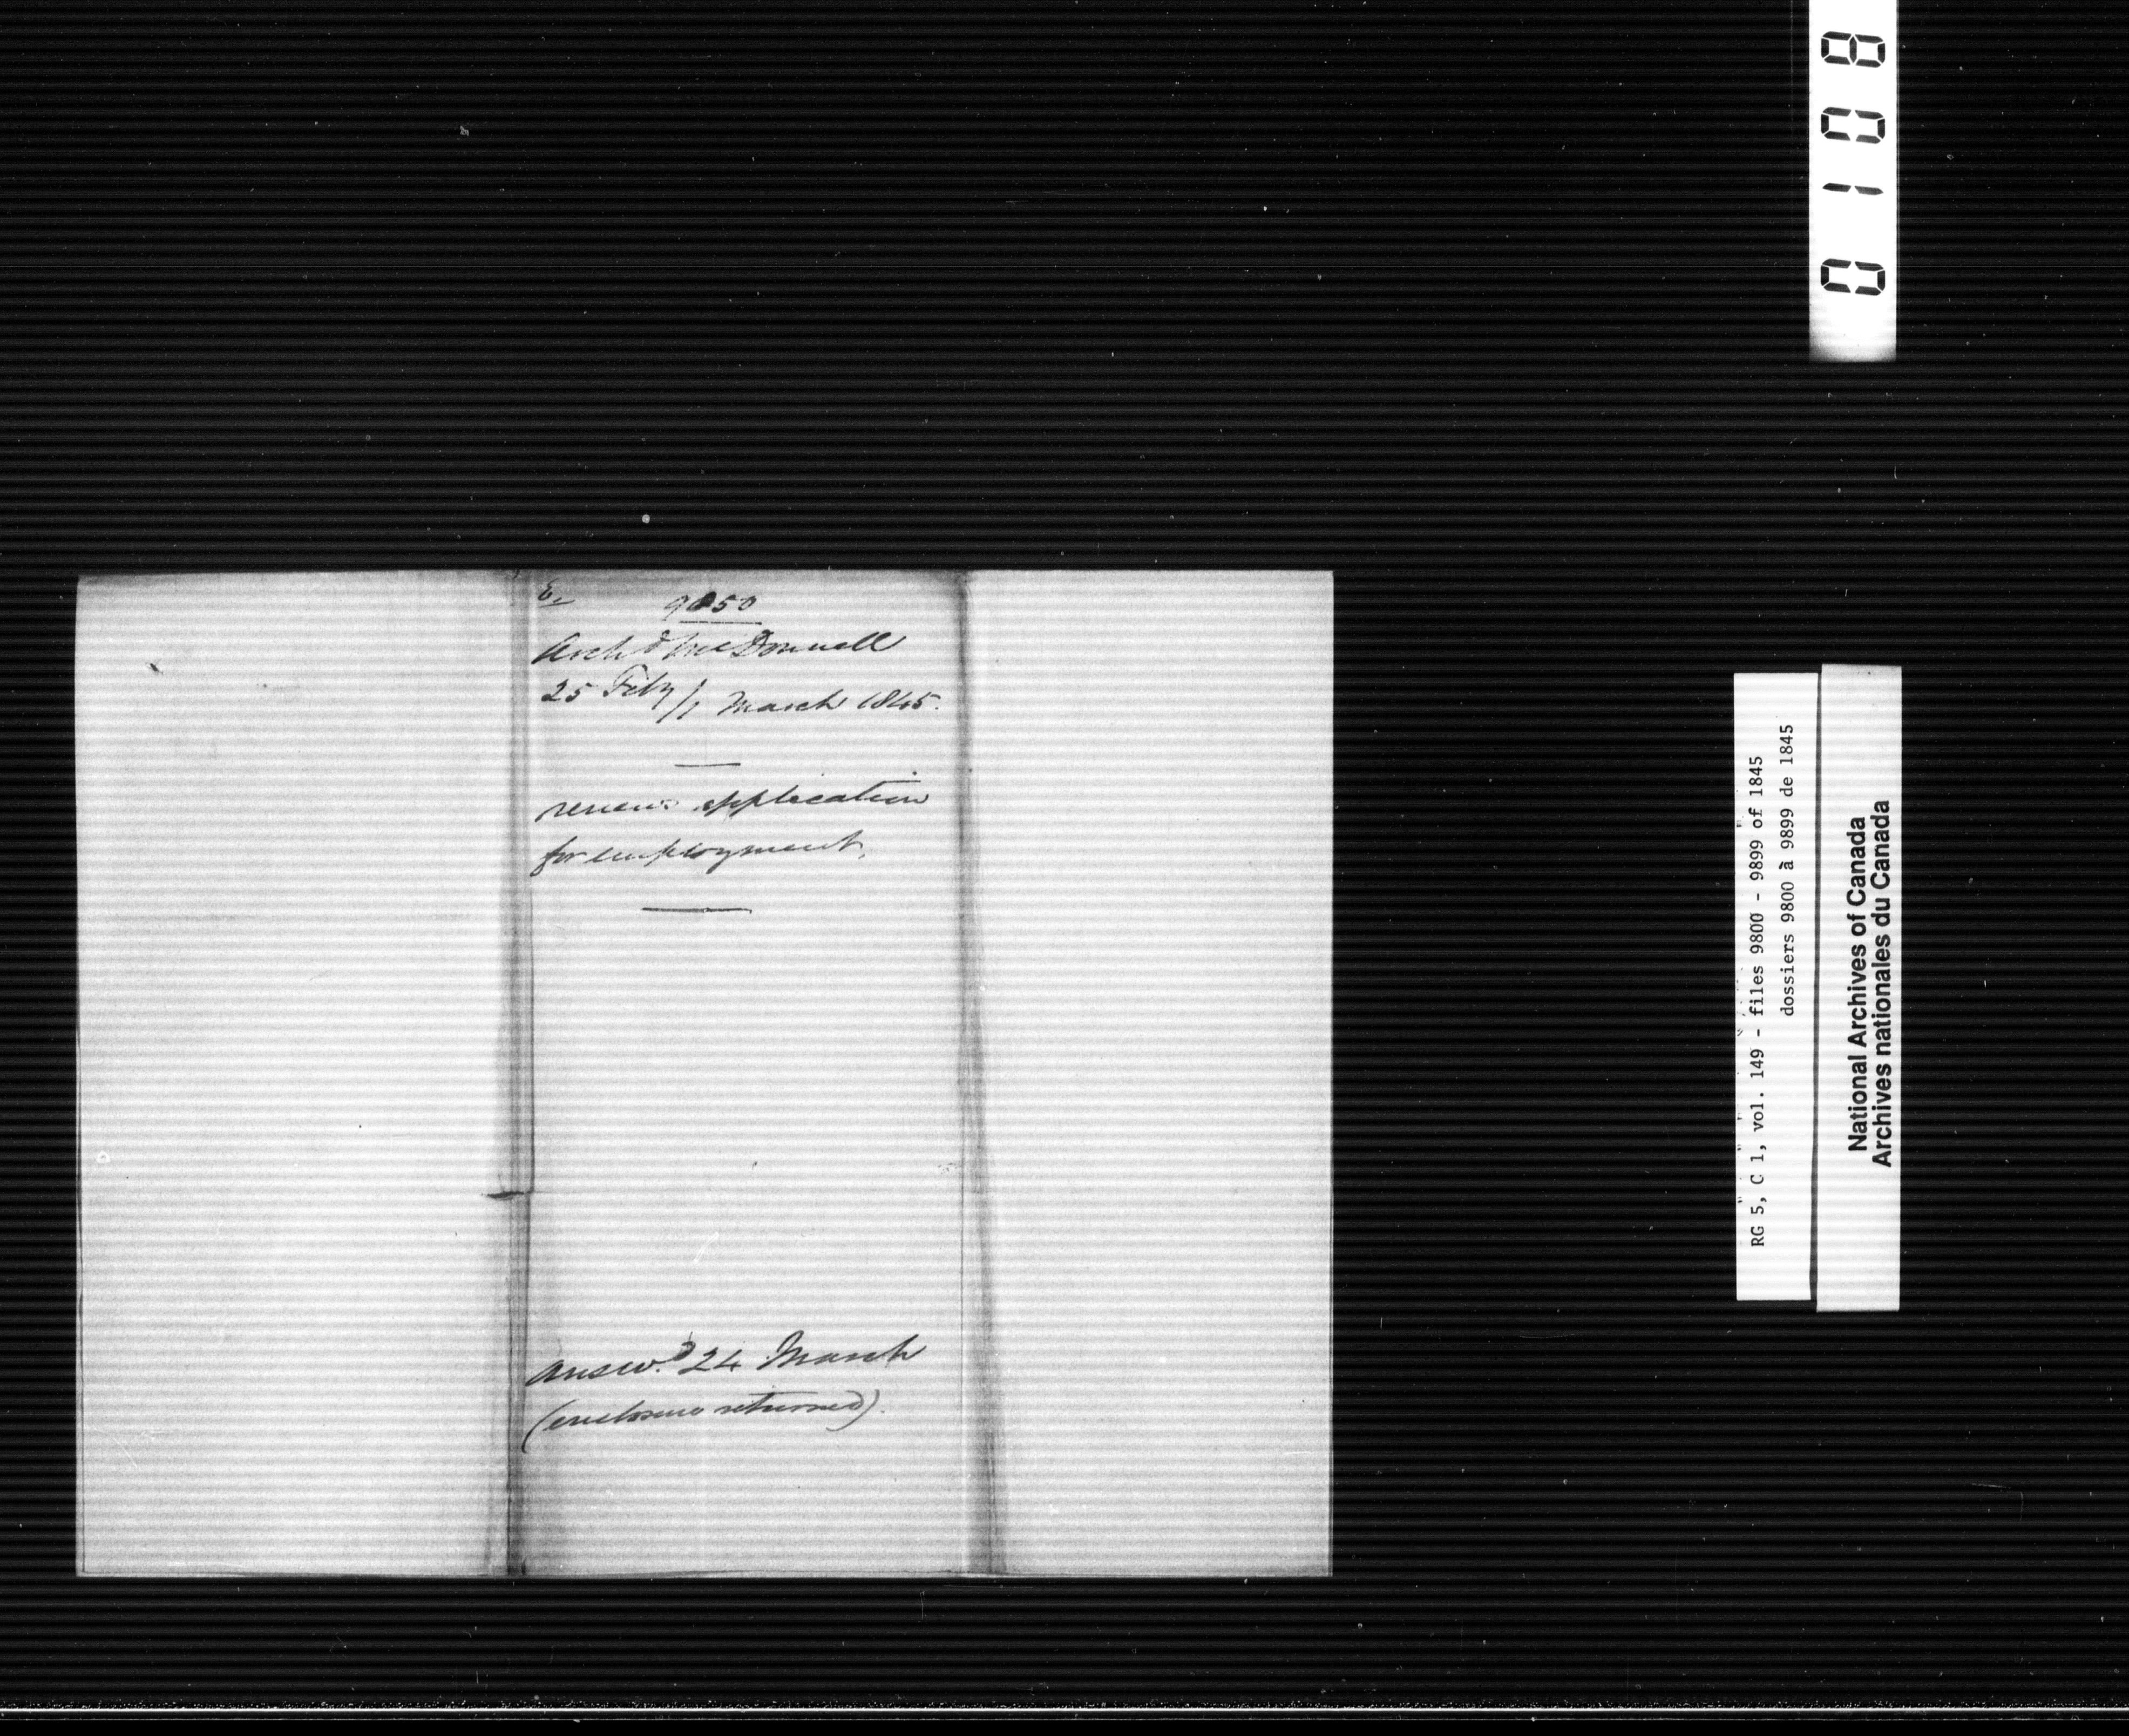 E.
9850
Arch^d McDonnell
25 Feby/1 March 1845.
renews application
for employment.
Answ.^d 24 March
(enclosure returned).
0108
RG 5, C 1, vol. 149 - files 9800 - 9899 of 1845
dossiers 9800 à 9899 de 1845
National Archives of Canada
Archives nationales du Canada